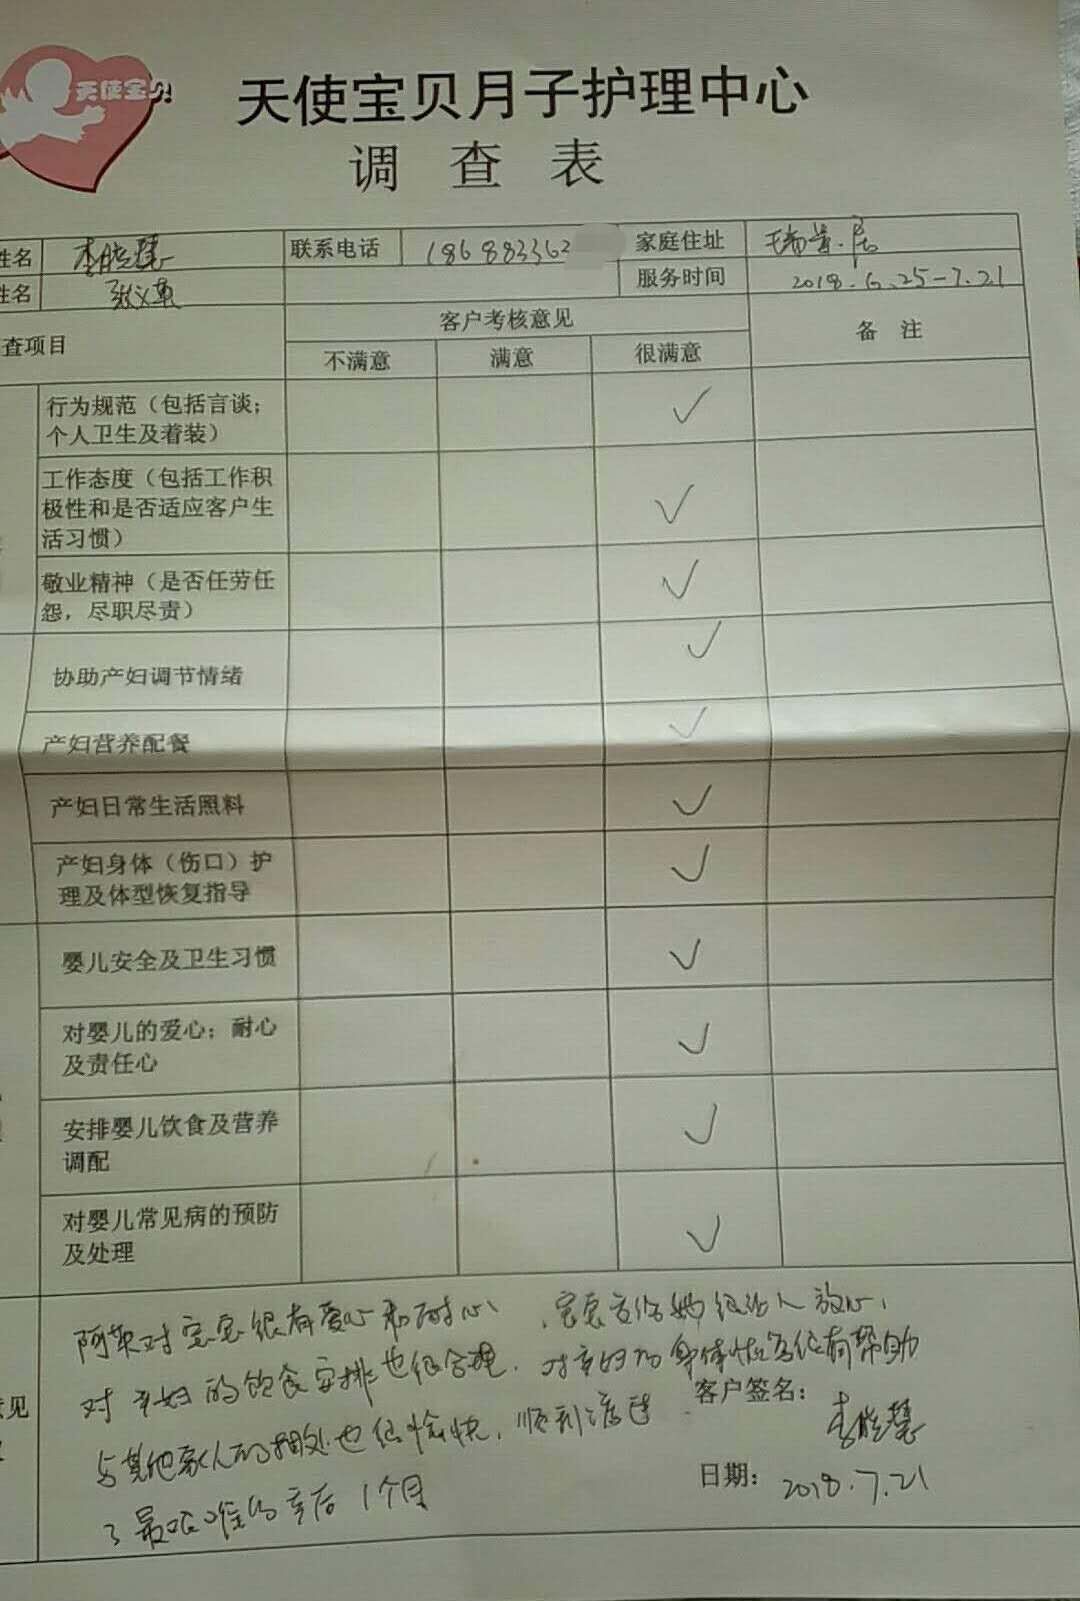 天使宝贝
天使宝贝月子护理中心
调 查 表
姓名 李晓慧 联系电话 186 883362 家庭住址 瑞景居
姓名 服务时间 2018.6.25-7.21
查项目 客户考核意见 备 注
不满意 满意 很满意
行为规范（包括言谈；
个人卫生及着装） ✓
工作态度（包括工作积
极性和是否适应客户生 ✓
活习惯）
敬业精神（是否任劳任 ✓
怨，尽职尽责）
协助产妇调节情绪 ✓
产妇营养配餐 ✓
产妇日常生活照料 ✓
产妇身体（伤口）护 ✓
理及体型恢复指导
婴儿安全及卫生习惯 ✓
对婴儿的爱心；耐心 ✓
及责任心
安排婴儿饮食及营养 ✓
调配
对婴儿常见病的预防 ✓
及处理
阿英对宝宝很有爱心和耐心、宝宝交给她很让人放心，
对产妇的饮食安排也很合理．对产妇的身体恢复很有帮助
意见 客户签名：
与其他家人的相处也很愉快，顺利渡过 李晓慧
日期：2018.7.21
了最艰难的产后1个月